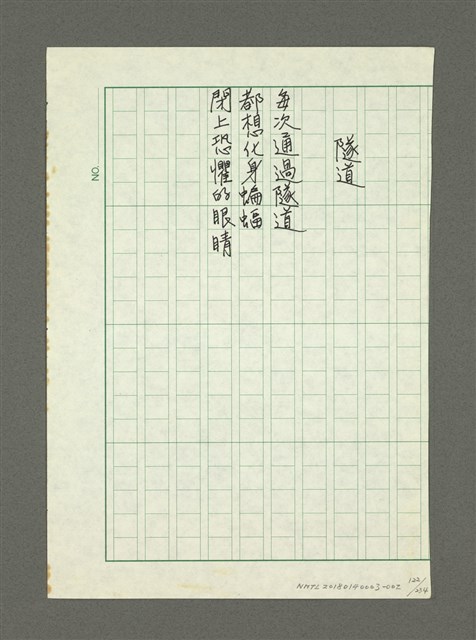 隧道
每次通過隧道
都想化身蝙蝠
閉上恐懼的眼睛
NO.
NMTL20180140003-002
122/234